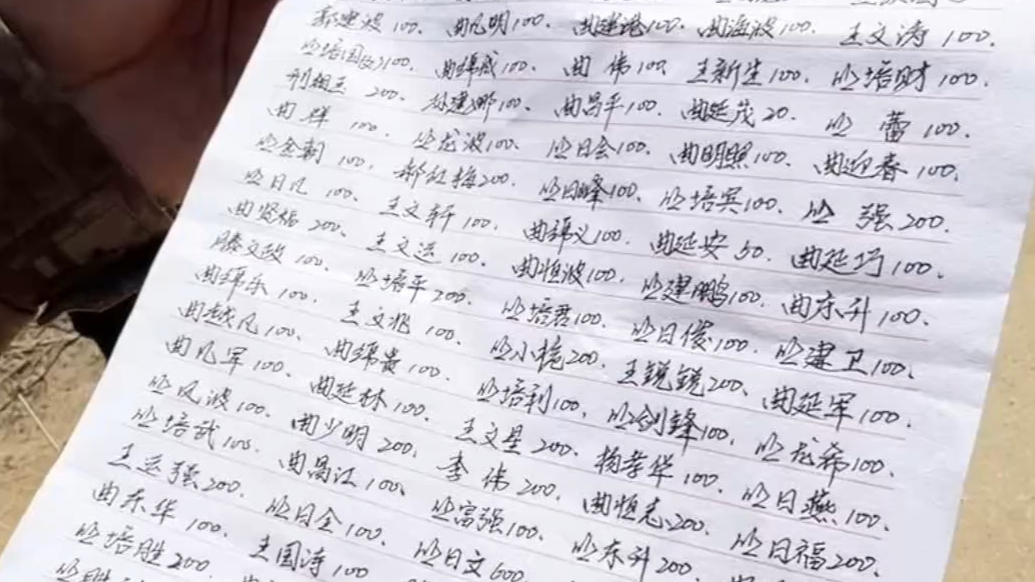 郝建波100. 曲凡明100. 曲建港100. 曲海波100. 王文涛100.
丛培国(女)100. 曲锦成100. 曲伟100. 王新生100. 丛培财100.
刑翔玉200. 孙建娜100. 曲昌平100. 曲延茂20. 丛蕾100.
曲群100. 丛龙波100. 丛日会100. 曲明照100. 曲迎春100.
丛金100. 郝红梅200. 丛日峰100. 丛培宾100. 丛强200.
丛日凡100. 王文轩100. 曲锦义100. 曲延安50. 曲延巧100.
曲贤福200. 王文运100. 曲恒波100. 丛建鹏100. 曲东升100.
滕文政100. 丛培平200. 丛培君100. 丛日俊100. 丛建卫100.
曲锦乐100. 王文兆100. 丛小200. 王锐锐200. 曲延军100.
曲越凡100. 曲锦贵100. 丛培利100. 丛剑锋100. 丛龙希100.
曲凡军100. 曲延林100. 王文星200. 杨孝华100. 丛日燕100.
丛凤波100. 曲少明200. 李伟200. 曲恒志200. 丛日福200.
丛培武100. 曲昌江100. 丛富强100. 丛东升200.
王运强200. 丛日全100. 丛日文600.
曲东华100. 王国涛100
丛培胜200.